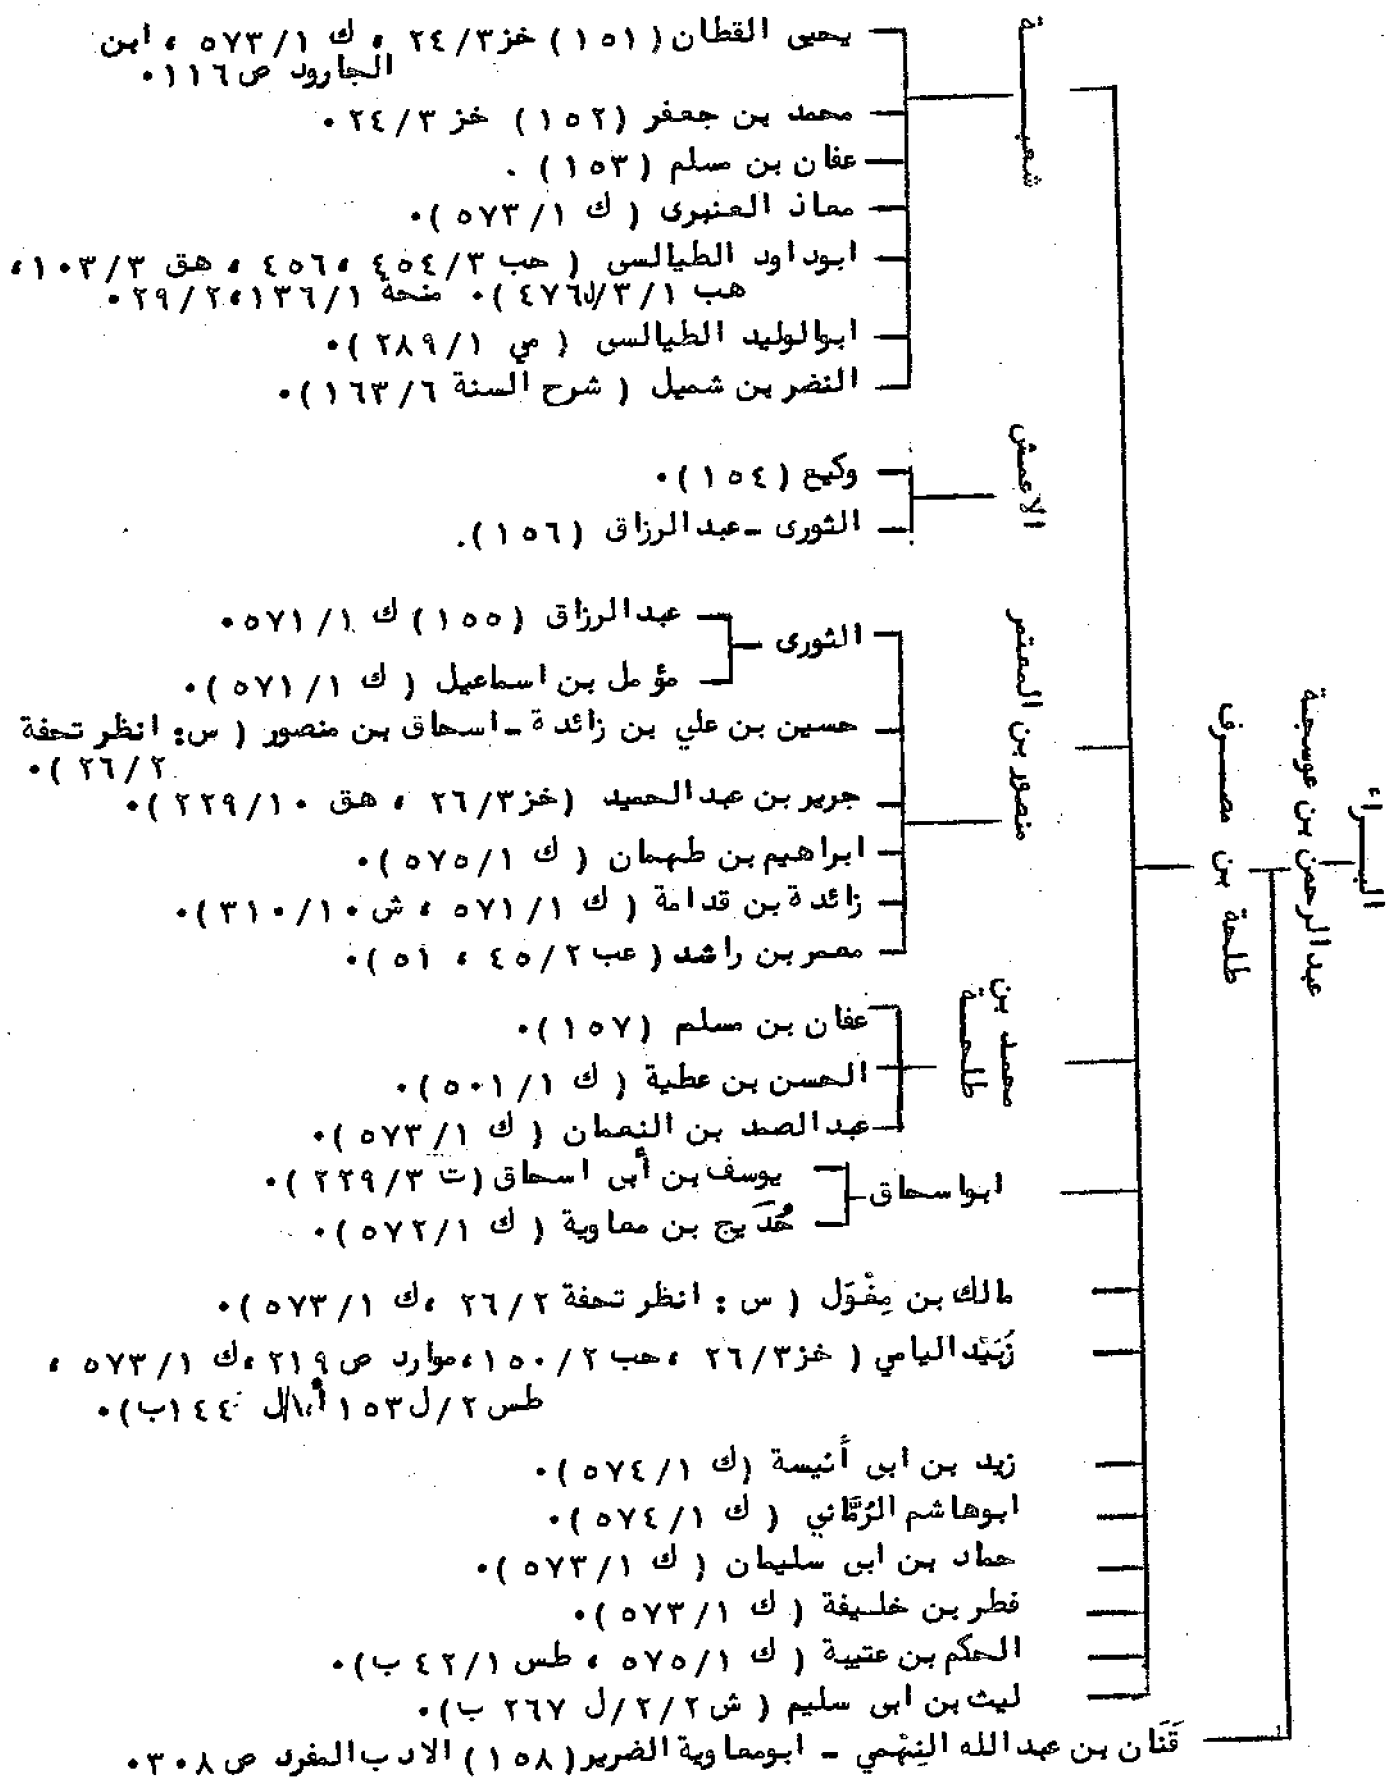 البـــراء
عبدالرحمن بن عوسجة
طلحة بن مصــرف
شعبــــة
يحيى القطان (١٥١) خز ٢٤/٣ ، ك ٥٧٣/١ ، ابن
الجارود ص ١١٦٠
محمد بن جعفر (١٥٢) خز ٢٤/٣ ٠
عفان بن مسلم (١٥٣) .
معاذ العنبرى ( ك ٥٧٣/١ )٠
ابوداود الطيالسى ( حب ٤٥٤/٣ ، ٤٥٦ ، هق ١٠٣/٣ ،
هب ٤٧٦/٣/١ )٠ منحة ١٣٦/١، ٢٩/٢ ٠
ابوالوليد الطيالسى ( مي ٢٨٩/١ )٠
النضر بن شميل ( شرح السنة ١٦٣/٦ )٠
الاعمش
وكيع (١٥٤)٠
الثورى - عبدالرزاق (١٥٦).
منصور بن المعتمر
الثورى
عبدالرزاق (١٥٥) ك ٥٧١/١ ٠
مؤمل بن اسماعيل ( ك ٥٧١/١ )٠
حسين بن علي بن زائدة - اسحاق بن منصور ( س: انظر تحفة
٢٦/٢ )٠
جرير بن عبدالحميد (خز ٢٦/٣ ، هق ٢٢٩/١٠ )٠
ابراهيم بن طهمان ( ك ٥٧٥/١ )٠
زائدة بن قدامة ( ك ٥٧١/١ ، ش ٣١٠/١٠ )٠
معمر بن راشد ( عب ٤٥/٢ ، ٥١ )٠
محمد بن
طلحـــة
عفان بن مسلم (١٥٧)٠
الحسن بن عطية ( ك ٥٠١/١ )٠
عبدالصمد بن النعمان ( ك ٥٧٣/١ )٠
ابواسحاق
يوسف بن أبى اسحاق (ت ٢٢٩/٣ )٠
حُدَيج بن معاوية ( ك ٥٧٢/١ )٠
مالك بن مِغْوَل ( س : انظر تحفة ٢٦/٢ ، ك ٥٧٣/١ )٠
زُبَيْد اليامي ( خز ٢٦/٣ ، حب ١٥٠/٢ ، موارد ص ٢١٩ ، ك ٥٧٣/١ ،
طس ٢/ل ١٥٣ أ، ل ١٤٤ب)٠
زيد بن ابى أنيسة (ك ٥٧٤/١ )٠
ابوهاشم الرُمَّاني ( ك ٥٧٤/١ )٠
حماد بن ابى سليمان ( ك ٥٧٣/١ )٠
فطر بن خليفة ( ك ٥٧٣/١ )٠
الحكم بن عتيبة ( ك ٥٧٥/١ ، طس ٤٢/١ ب)٠
ليث بن ابى سليم ( ش ٢/٢/ل ٢٦٧ ب)٠
قَنَان بن عبدالله النِهْمي - ابومعاوية الضرير (١٥٨) الادب المفرد ص ٣٠٨ ٠